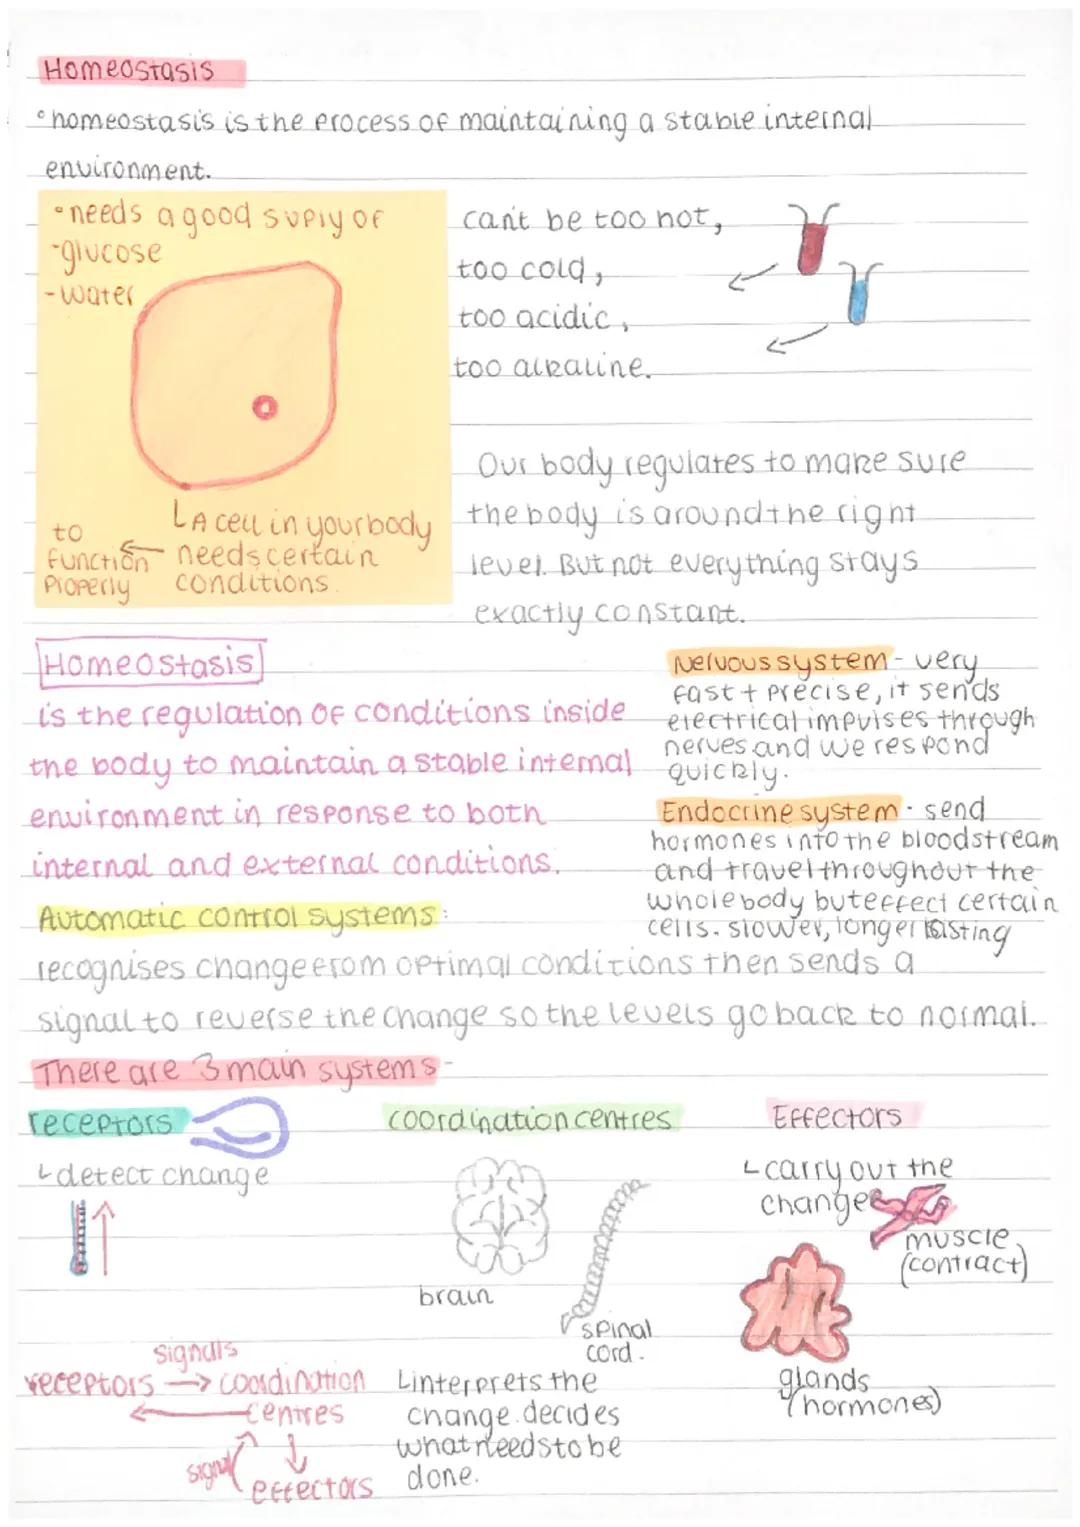 Homeostasis
• homeostasis is the process of maintaining a stable internal
environment.
• needs a good suply of
- glucose
- water
└ A cell in your body
needs certain
conditions.
← to
function
properly
can't be too hot,
too cold,
too acidic,
too alkaline.
Our body regulates to make sure
the body is around the right
level. But not everything stays
exactly constant.
Homeostasis
is the regulation of conditions inside
the body to maintain a stable internal
environment in response to both
internal and external conditions.
Nervous system - very
fast + precise, it sends
electrical impulses through
nerves and we respond
quickly.
Endocrine system - send
hormones into the bloodstream
and travel throughout the
whole body but effect certain
cells. slower, longer lasting
Automatic control systems:
recognises change from optimal conditions then sends a
signal to reverse the change so the levels go back to normal.
There are 3 main systems -
receptors
└ detect change
coordination centres
brain
spinal
cord.
└ interprets the
change. decides
what needs to be
done.
Effectors
└ carry out the
change
muscle
(contract)
glands
(hormones)
signals
receptors → coordination
← centres
signal
effectors